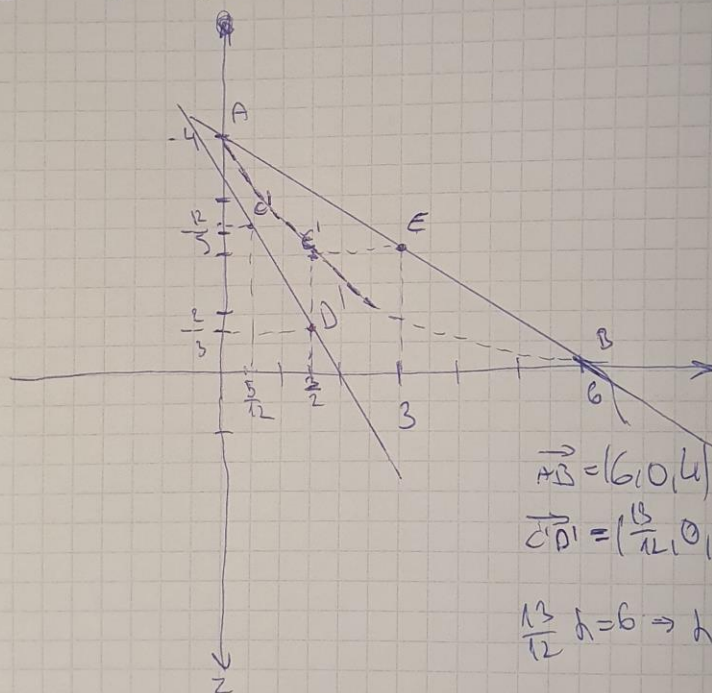 A
-4
C'
12/5
E'
E
D'
2/3
B
5/12
3/2
3
6
AB = (6,0,4)
C'D' = (13/12, 0,
13/12 λ = 6 ⇒ λ
Z